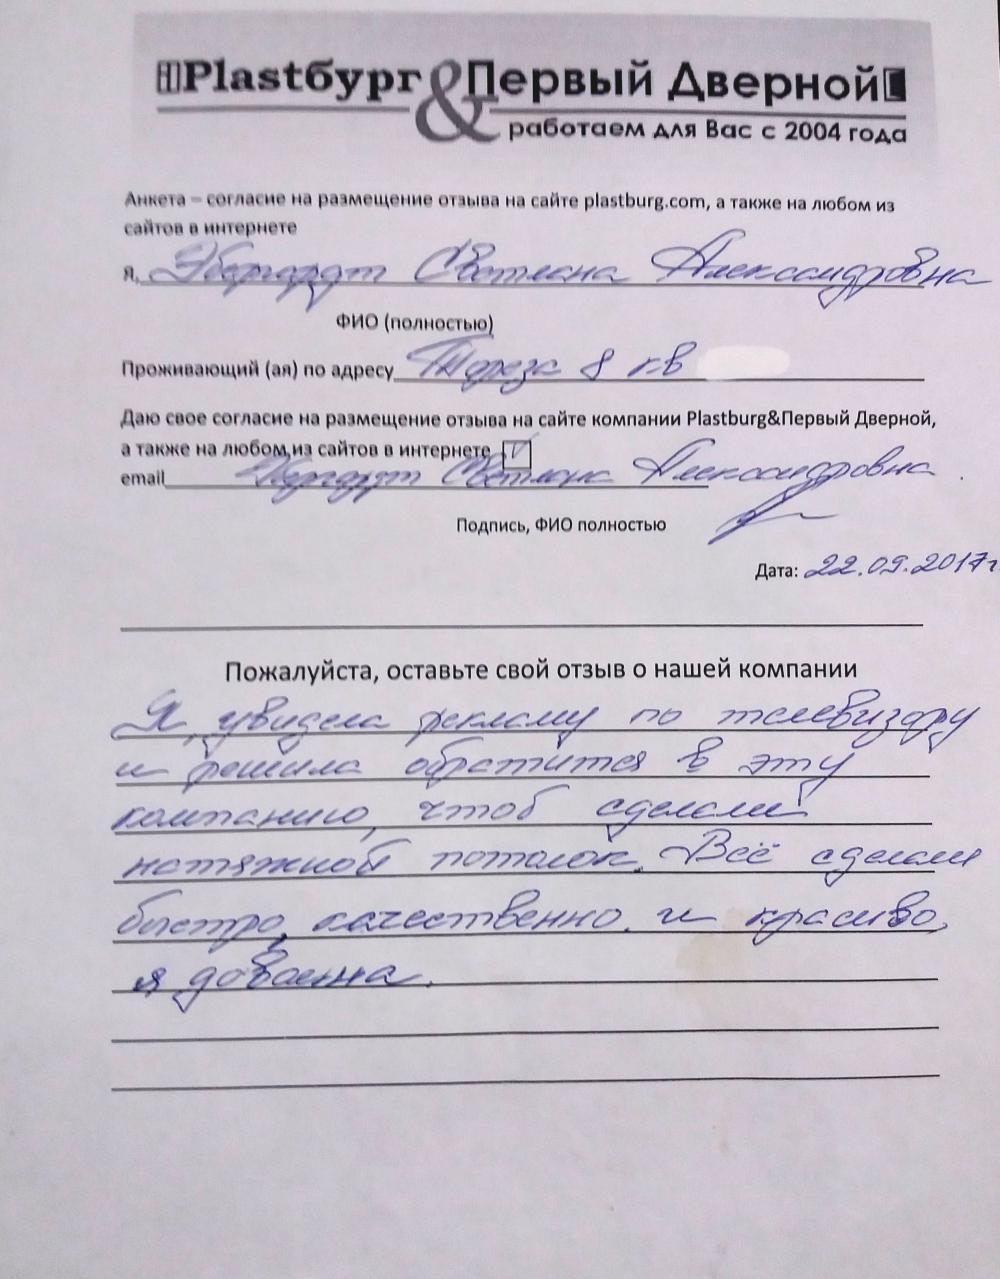 Plastбург & Первый Дверной
работаем для Вас с 2004 года
Анкета – согласие на размещение отзыва на сайте plastburg.com, а также на любом из
сайтов в интернете
Я, Эбергардт Светлана Александровна
ФИО (полностью)
Проживающий (ая) по адресу Тореза 8 к.в
Даю свое согласие на размещение отзыва на сайте компании Plastburg&Первый Дверной,
а также на любом из сайтов в интернете
email Эбергардт Светлана Александровна
Подпись, ФИО полностью
Дата: 22.09.2017г
Пожалуйста, оставьте свой отзыв о нашей компании
Я увидела рекламу по телевизору
и решила обратится в эту
компанию, чтоб сделали
натяжной потолок. Всё сделали
быстро, качественно и красиво,
я довольна.